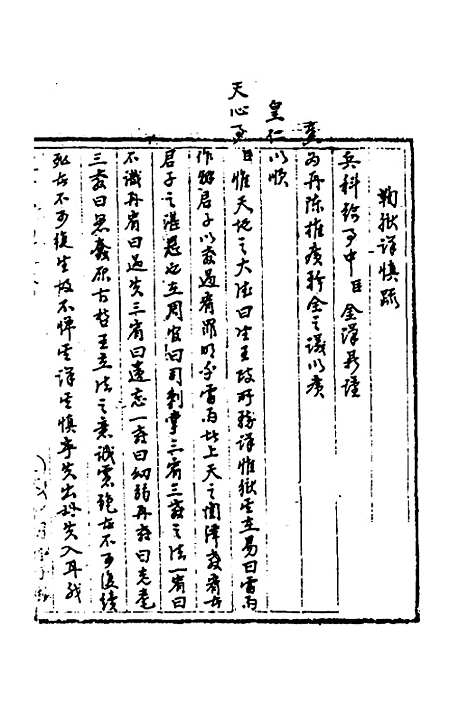 鞫獄詳慎疏
兵科給事中臣金漢鼎謹
奏為再陳推廣矜全之議以廣
皇仁以順
天心事臣惟天地之大德曰生王政所務詳惟獄在易曰雷雨
作解君子以赦過宥罪明乎雷雨此上天之闓澤赦宥
君子之湛恩也在周官曰司刺掌三宥三赦之法一宥曰
不識再宥曰過失三宥曰遺忘一赦曰幼弱再赦曰老耄
三赦曰惷愚原古哲王立法之意誠憲絕者不可復續
死者不可復生故不憚其詳其慎寧失出毋失入耳我